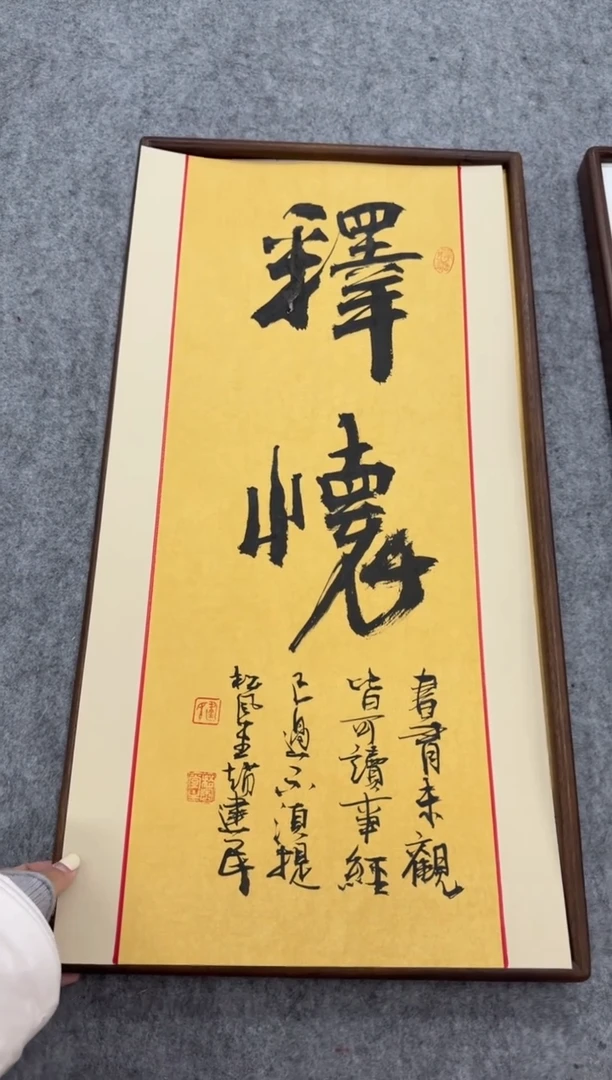 釋
懷
書有未觀
皆可讀事經
已過不須提
松風趙建